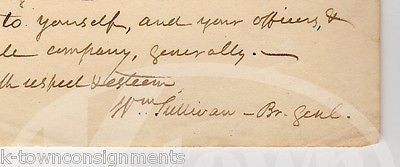 to yourself, and your officers, &
le company, generally. —
th respect & esteem,
Wm Sullivan — Br. Genl.
k-townconsignments